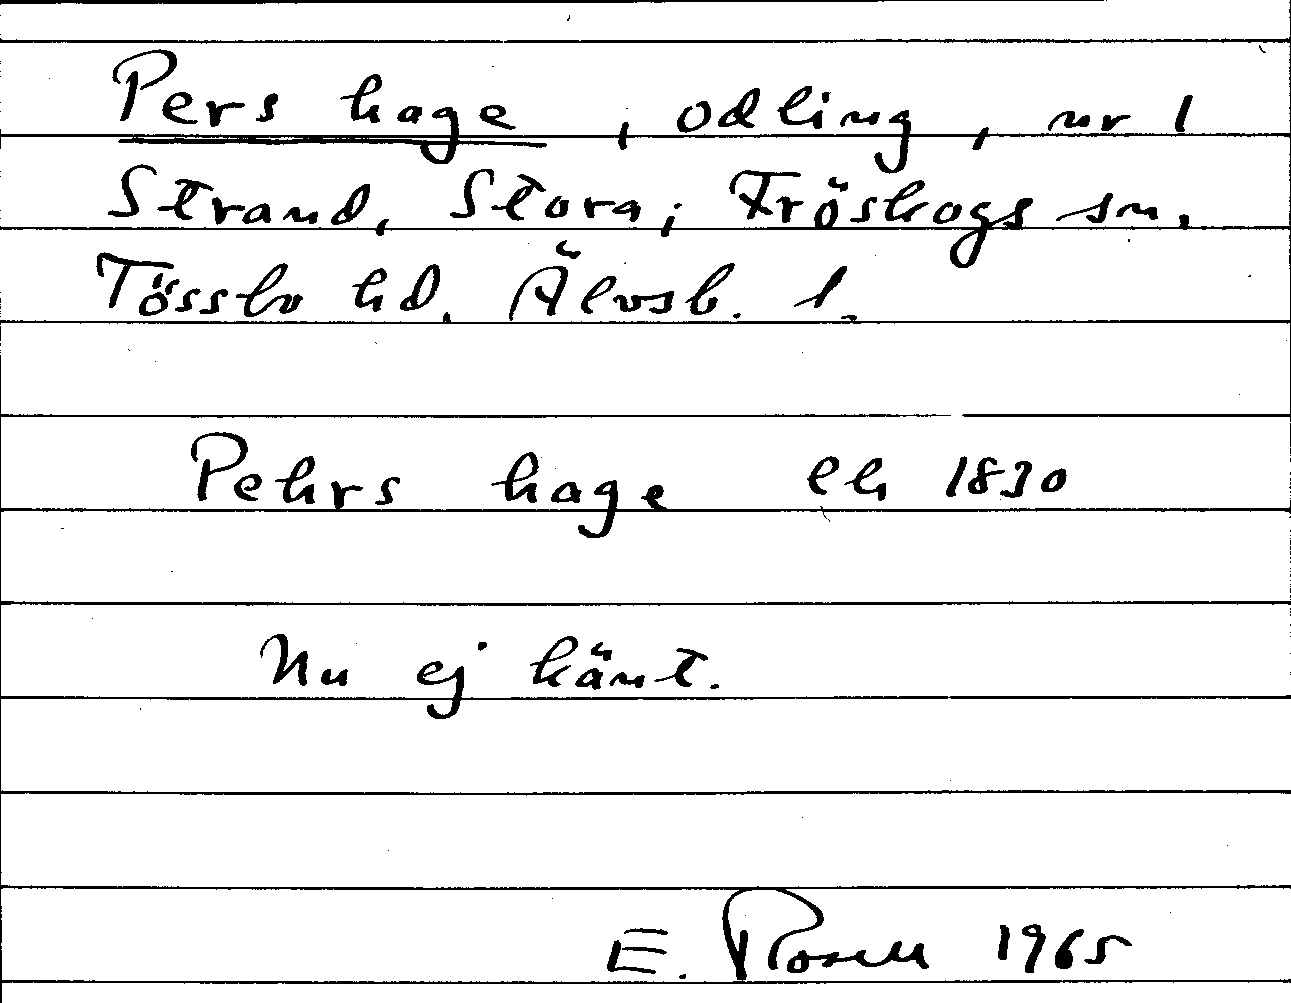 Pers hage, odling, nr 1
Strand, Stora; Fröskogs sn.
Tössbo hd. Älvsb. l.
Pehrs hage lh 1830
Nu ej känt.
E. Rosell 1965